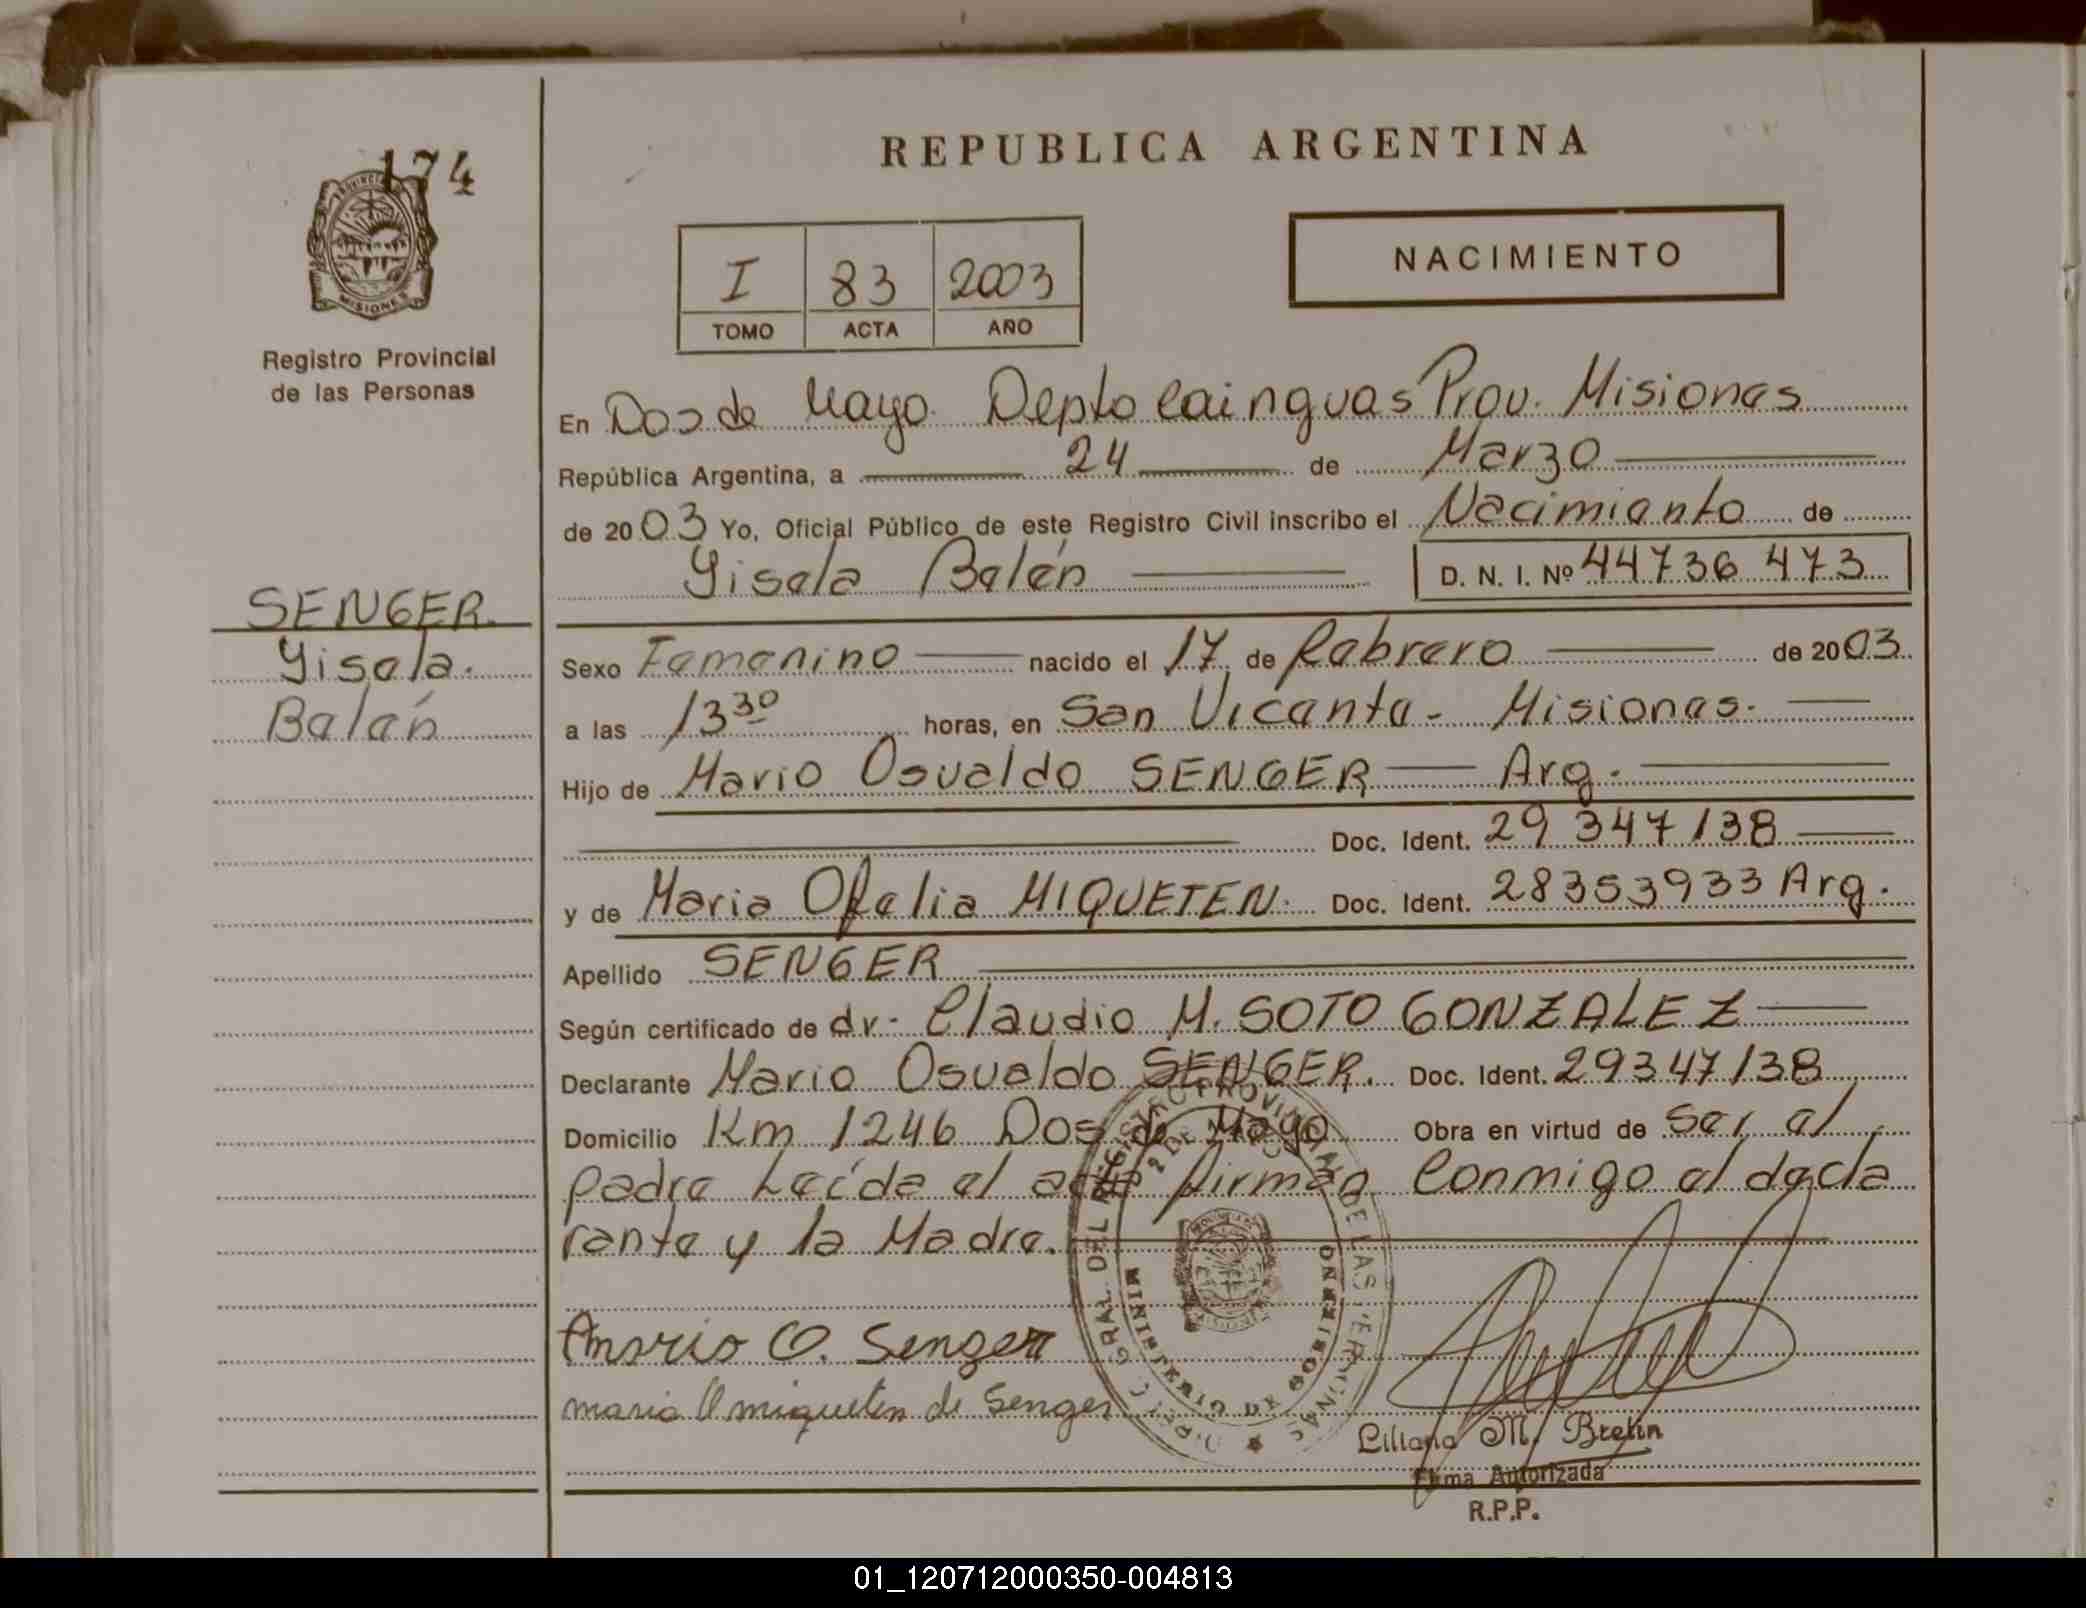 174
PROVINCIA
MISIONES
Registro Provincial
de las Personas
SENGER.
Gisela.
Belén
REPUBLICA ARGENTINA
I 83 2003
TOMO ACTA AÑO
NACIMIENTO
En Dos de Mayo. Depto Cainguas Prov. Misiones
República Argentina, a 24 de Marzo
de 2003 Yo, Oficial Público de este Registro Civil inscribo el Nacimiento de
Gisela Belén D. N. I. Nº 44736 473
Sexo Femenino nacido el 17 de febrero de 2003
a las 13 30 horas, en San Vicente - Misiones.
Hijo de Mario Osvaldo SENGER Arg.
Doc. Ident. 29 347 138
y de Maria Ofelia MIQUETEN. Doc. Ident. 28353933 Arg.
Apellido SENGER
Según certificado de dr. Claudio M. SOTO GONZALEZ
Declarante Mario Osvaldo SENGER. Doc. Ident. 29347138
Domicilio Km 1246 Dos de Mayo Obra en virtud de ser el
padre Leída el acta firman Conmigo el decla
rante y la Madre.
Mario O. Senger
maria O miqueten de Senger
DIRECC. GRAL. DEL REGISTRO PROVINCIAL DE LAS PERSONAS
2 DE MAYO
MINISTERIO DE GOBIERNO
Liliana M. Bretin
Firma Autorizada
R.P.P.
01_120712000350-004813